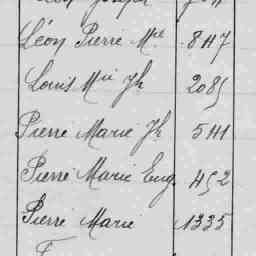 Léon Pierre Mie 847
Louis Mie Jh 2085
Pierre Marie Jh 541
Pierre Marie Eug. 452
Pierre Marie 1335